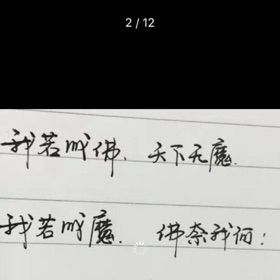 2 / 12
我若成佛、天下无魔.
我若成魔. 佛奈我何: